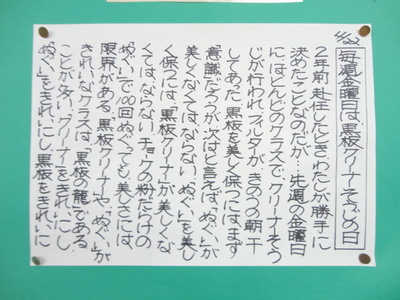 4/22
毎週金曜日は黒板クリーナーそうじの日
２年前、赴任したとき、わたしが勝手に
決めたことなのだが…先週の金曜日
にはほとんどのクラスで、クリーナーそう
じが行われ、フィルターがきのうの朝、干
してあった。黒板を美しく保つには、まず
「意識」だろうが、次はと言えば、「ぬぐい」が
美しくなくてはならない。「ぬぐい」を美し
く保つには、「黒板クリーナー」が美しくな
くてはならない。チョークの粉だらけの
「ぬぐい」で100回ぬぐっても、美しさには、
限界がある。「黒板クリーナー」や、「ぬぐい」が
きれいなクラスは、「黒板の龍」である
ことが多い。クリーナーをきれいにし、
「ぬぐい」をきれいにし、黒板をきれいに